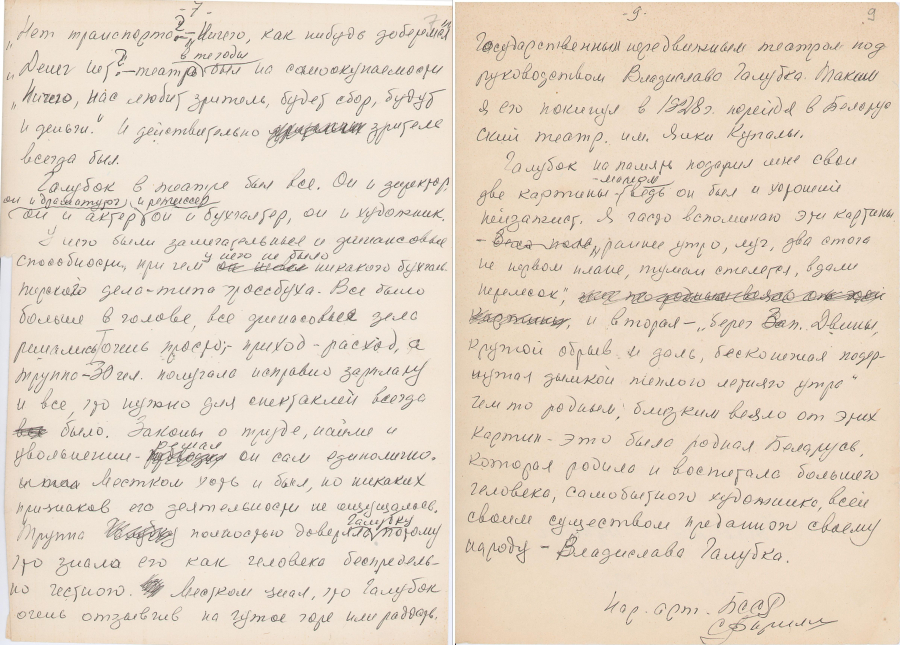 -7-
„Нет транспорта? – „Ничего, как нибудь доберемся"
в те годы
„Денег нет? – театр был на самоокупаемости
„Ничего, нас любит зритель, будет сбор, будут
и деньги." И действительно зритель
всегда был.
Галубок в театре был все. Он и директор,
он и драматург, и режиссер
он и актер, он и бухгалтер, он и художник.
У него были замечательные и финансовые
у него не было
способности, при чем никакого бухгал-
терского дела – типа гроссбуха. Все было
больше в голове, все финансовые дела
решались очень просто; – приход – расход, а
труппа – 30 чел. получала исправно зарплату
и все, что нужно для спектаклей всегда
было. Законы о труде, найме и
решал
увольнении – он сам единолично.
Местком хоть и был, но никаких
признаков его деятельности не ощущалось.
Галубку
Труппа полностью доверяла потому
что знала его как человека беспредель-
но честного. Местком знал, что Галубок
очень отзывчив на чужое горе или радость.
-9-
9
Государственным передвижным театром под
руководством Владислава Галубка. Таким
я его покинул в 1928 г. перейдя в Белорус
ский театр им. Янки Купалы.
Галубок на память подарил мне свои
маслом
две картины – ведь он был и хороший
пейзажист. Я часто вспоминаю эти картины
– „раннее утро, луг, два стога
на первом плане, туман стелется, вдали
перелесок",
и вторая – „берег Зап. Двины,
крутой обрыв и даль, бесконечная подер-
нутая дымкой теплого летнего утра"
Чем то родным, близким веяло от этих
картин – это была родная Беларусь,
которая родила и воспитала большого
человека, самобытного художника, всем
своим существом преданного своему
народу – Владислава Галубка.
Нар. арт. БССР